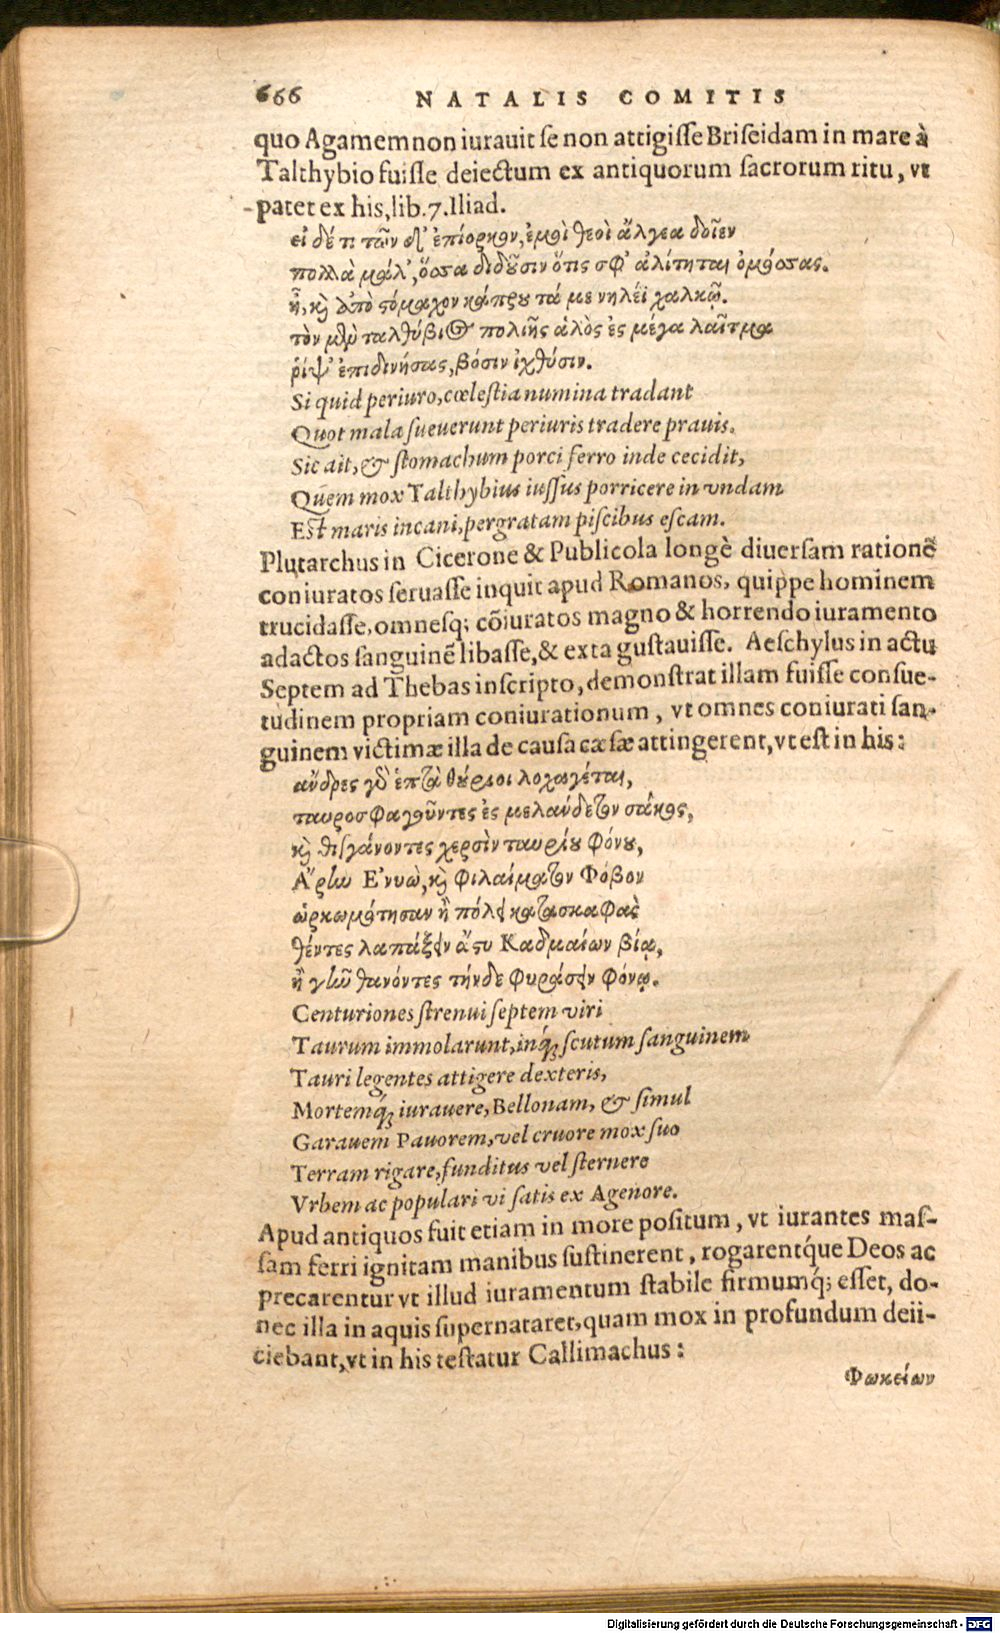 666 NATALIS COMITIS
quo Agamemnon iurauit se non attigisse Briseidam in mare à
Talthybio fuisse deiectum ex antiquorum sacrorum ritu, vt
patet ex his, lib.7.Iliad.
εἰ δέ τι τῶν δ' ἐπίορκον, ἐμοὶ θεοὶ ἄλγεα δοῖεν
πολλὰ μάλ', ὅσσα διδοῦσιν ὅτις σφ' ἀλίτηται ὀμόσσας.
ἦ, καὶ ἀπὸ στόμαχον κάπρου τάμε νηλέϊ χαλκῷ.
τὸν μὲν ταλθύβιος πολιῆς ἁλὸς ἐς μέγα λαῖτμα
ῥίψ' ἐπιδινήσας, βόσιν ἰχθύσιν.
Si quid periuro, cœlestia numina tradant
Quot mala sueuerunt periuris tradere prauis.
Sic ait, & stomachum porci ferro inde cecidit,
Quem mox Talthybius iussus porricere in vndam
Est maris incani, pergratam piscibus escam.
Plutarchus in Cicerone & Publicola longè diuersam rationẽ
coniuratos seruasse inquit apud Romanos, quippe hominem
trucidasse, omnesq; cõiuratos magno & horrendo iuramento
adactos sanguinẽ libasse, & exta gustauisse. Aeschylus in actu
Septem ad Thebas inscripto, demonstrat illam fuisse consue-
tudinem propriam coniurationum, vt omnes coniurati san-
guinem victimæ illa de causa cæsæ attingerent, vt est in his:
ἄνδρες γὰρ ἑπτὰ θούριοι λοχαγέται,
ταυροσφαγοῦντες ἐς μελάνδετον σάκος,
καὶ θιγγάνοντες χερσὶν ταυρίου φόνου,
Ἄρην Ἐνυὼ, καὶ φιλαίματον Φόβον
ὡρκωμότησαν ἢ πόλει κατασκαφὰς
θέντες λαπάξειν ἄστυ Καδμαίων βίᾳ,
ἢ γῆν θανόντες τήνδε φυράσειν φόνῳ.
Centuriones strenui septem viri
Taurum immolarunt, inq́; scutum sanguinem
Tauri legentes attigere dexteris,
Mortemq́; iurauere, Bellonam, & simul
Garauem Pauorem, vel cruore mox suo
Terram rigare, funditus vel sternere
Vrbem ac populari vi satis ex Agenore.
Apud antiquos fuit etiam in more positum, vt iurantes mas-
sam ferri ignitam manibus sustinerent, rogarentq́ue Deos ac
precarentur vt illud iuramentum stabile firmumq́; esset, do-
nec illa in aquis supernataret, quam mox in profundum deii-
ciebant, vt in his testatur Callimachus:
Φωκείων
Digitalisierung gefördert durch die Deutsche Forschungsgemeinschaft - DFG